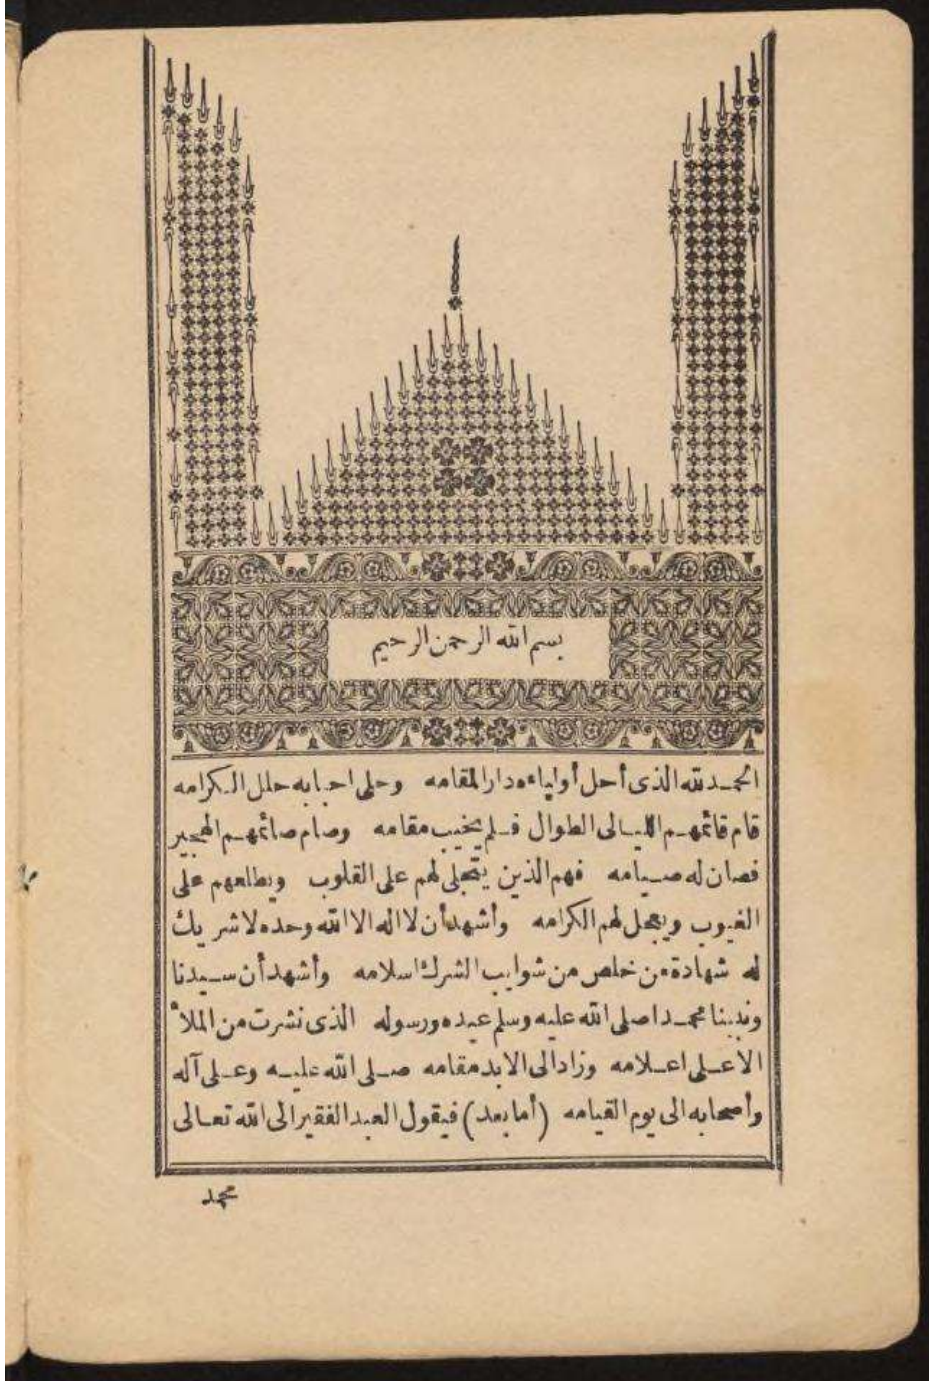 بسم الله الرحمن الرحيم
الحمد لله الذى أحل أولياءه دار المقامه وحلى احبابه حلل الكرامه
قام قائمهم الليالى الطوال فلم يخيب مقامه وصام صائمهم الهجير
فصان له صيامه فهم الذين يتجلى لهم على القلوب ويطلعهم على
الغيوب ويعجل لهم الكرامه وأشهد أن لا اله الا الله وحده لا شريك
له شهادة من خلص من شوايب الشرك اسلامه وأشهد أن سيدنا
ونبينا محمدا صلى الله عليه وسلم عبده ورسوله الذى نشرت من الملأ
الاعلى اعلامه وزاد الى الابد مقامه صلى الله عليه وعلى آله
وأصحابه الى يوم القيامه (أما بعد) فيقول العبد الفقير الى الله تعالى
محمد